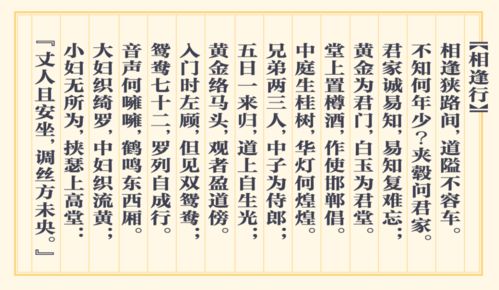 【相逢行】
相逢狭路间，道隘不容车。
不知何年少？夹毂问君家。
君家诚易知，易知复难忘；
黄金为君门，白玉为君堂。
堂上置樽酒，作使邯郸倡。
中庭生桂树，华灯何煌煌。
兄弟两三人，中子为侍郎；
五日一来归，道上自生光；
黄金络马头，观者盈道傍。
入门时左顾，但见双鸳鸯；
鸳鸯七十二，罗列自成行。
音声何噰噰，鹤鸣东西厢。
大妇织绮罗，中妇织流黄；
小妇无所为，挟瑟上高堂：
『丈人且安坐，调丝方未央。』